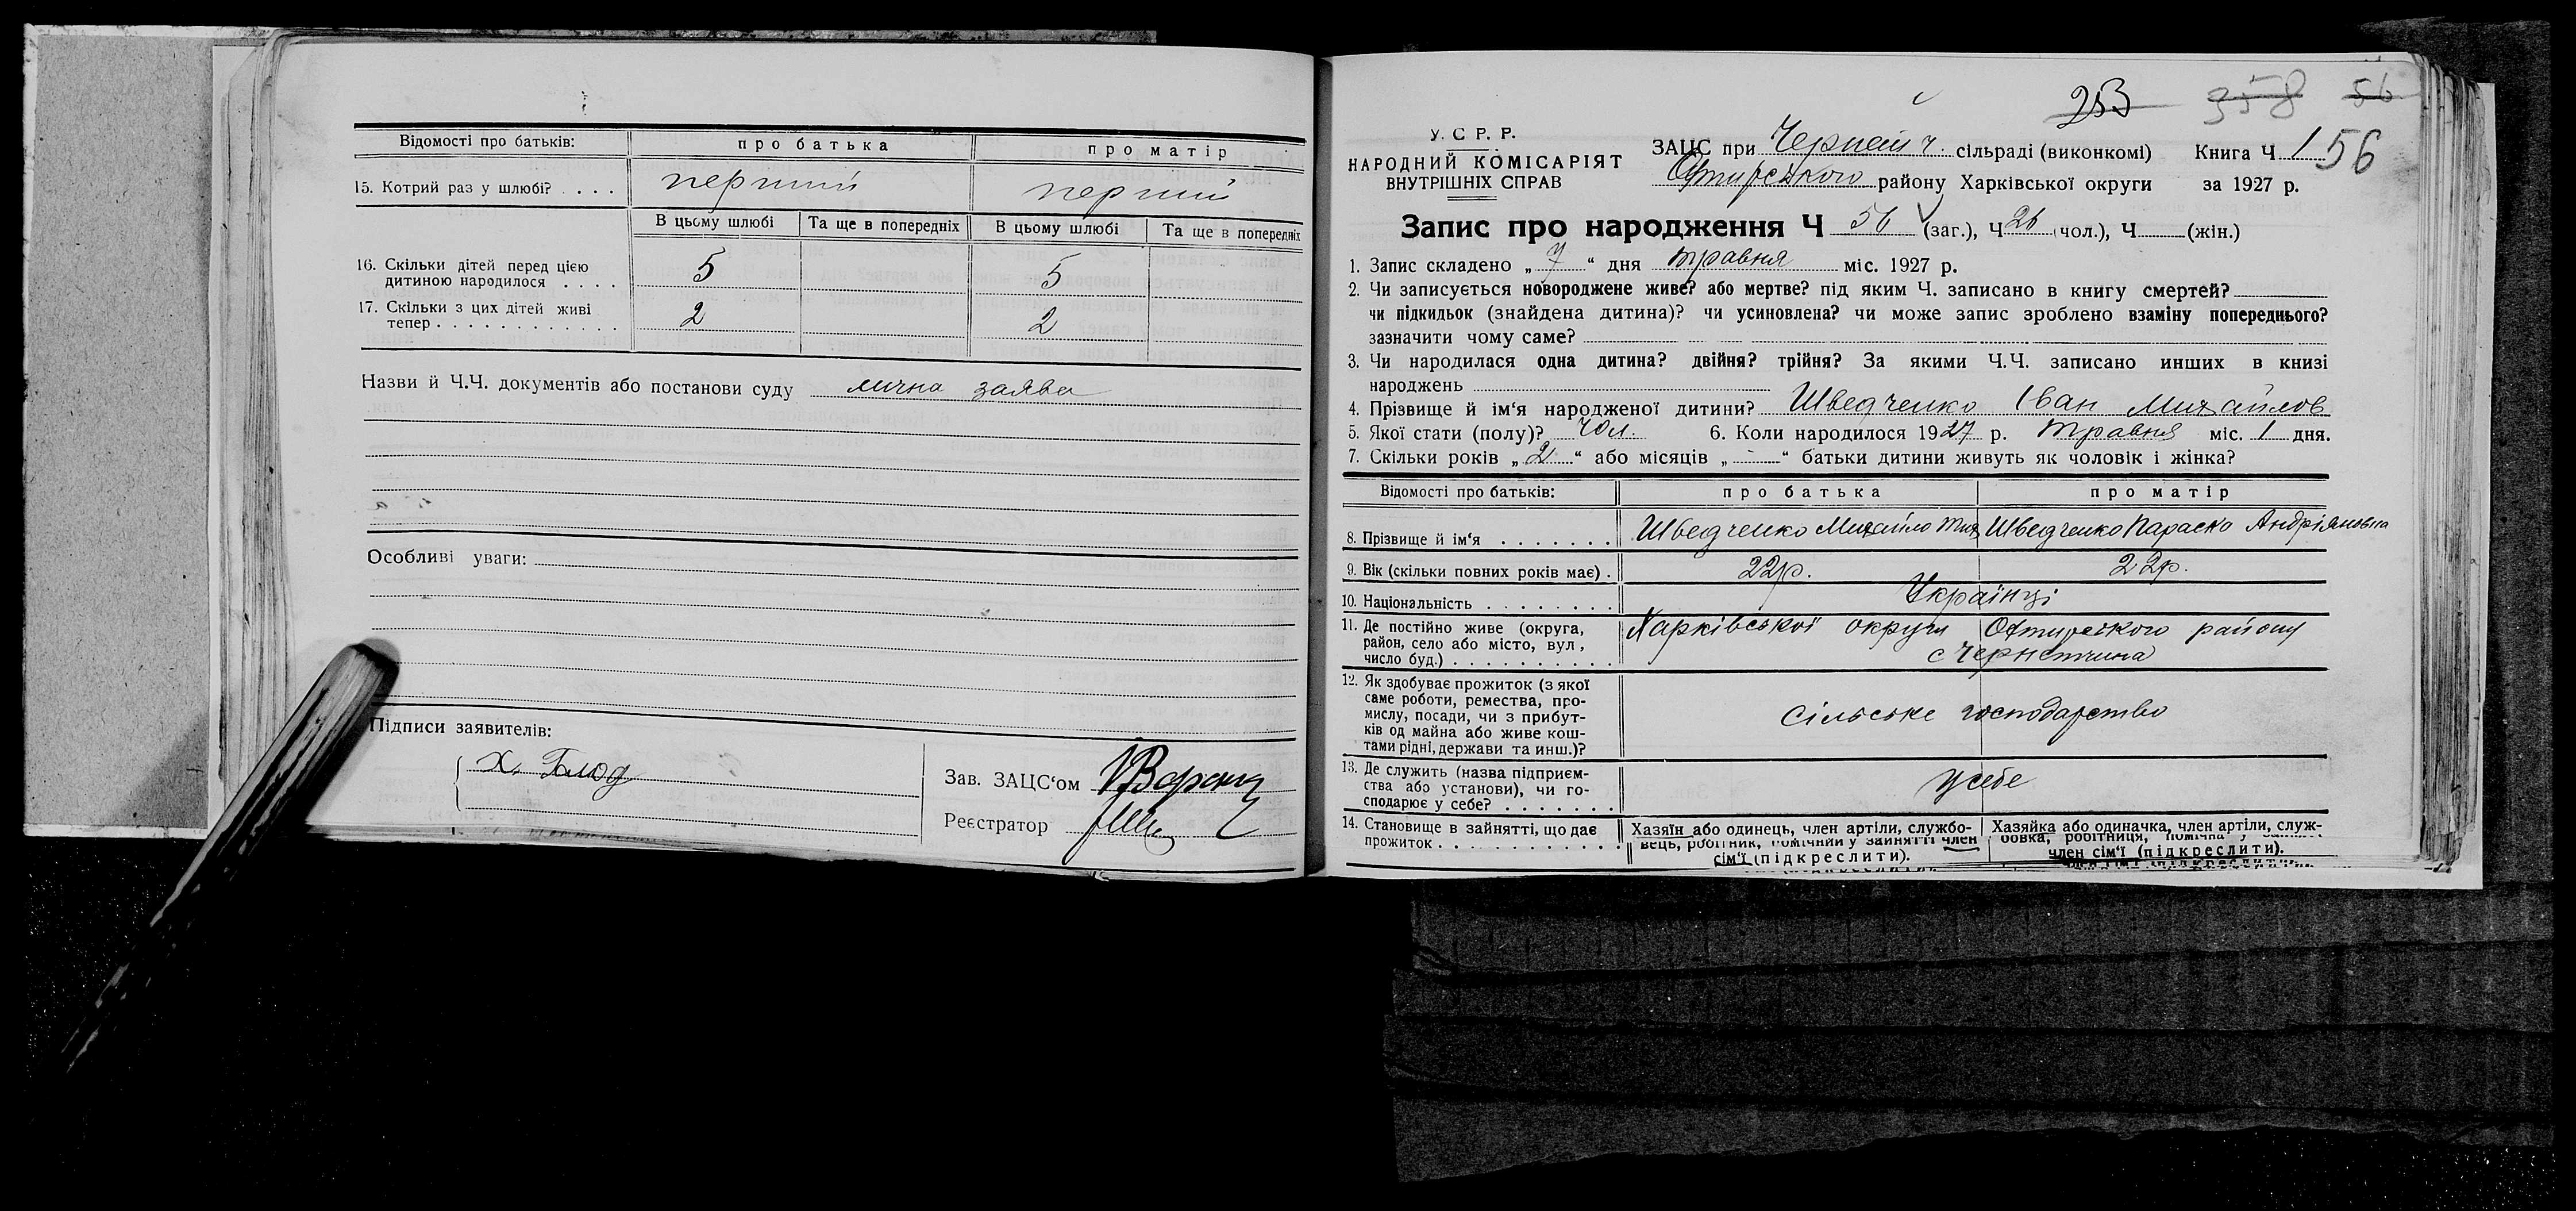 Відомості про батьків: про батька про матір
15. Котрий раз у шлюбі? . . . . перший перший
В цьому шлюбі Та ще в попередніх В цьому шлюбі Та ще в попередніх
16. Скільки дітей перед цією
дитиною народилося . . . . 5 5
17. Скільки з цих дітей живі
тепер . . . . . . . . . . . . . 2 2
Назви й Ч.Ч. документів або постанови суду лична заява
Особливі уваги:
Підписи заявителів:
Х.
Зав. ЗАЦС‘ом
Реєстратор
253 358 56
У. С. Р. Р.
НАРОДНИЙ КОМІСАРІЯТ
ВНУТРІШНІХ СПРАВ
ЗАЦС при сільраді (виконкомі) Книга Ч 1 56
Охтирського району Харківської округи за 1927 р.
Запис про народження Ч 56 (заг.), Ч 26 (чол.), Ч (жін.)
1. Запис складено „ 7 “ дня травня міс. 1927 р.
2. Чи записується новороджене живе? або мертве? під яким Ч. записано в книгу смертей?
чи підкидьок (знайдена дитина)? чи усиновлена? чи може запис зроблено взаміну попереднього?
зазначити чому саме?
3. Чи народилася одна дитина? двійня? трійня? За якими Ч.Ч. записано инших в книзі
народжень
4. Прізвище й ім‘я народженої дитини? Шведченко Іван Михайлов
5. Якої стати (полу)? чол. 6. Коли народилося 1927 р. травня міс. 1 дня.
7. Скільки років „ 2 “ або місяців „ - “ батьки дитини живуть як чоловік і жінка?
Відомості про батьків: про батька про матір
8. Прізвище й ім‘я . . . . . . . Шведченко Михайло Шведченко Параска Андріяновна
9. Вік (скільки повних років має) . 22р. 22р.
10. Національність . . . . . . . . Українці
11. Де постійно живе (округа,
район, село або місто, вул.,
число буд.) . . . . . . . . . . Харківської округи Охтирского району
с Чернетчина
12. Як здобуває прожиток (з якої
саме роботи, ремества, про-
мислу, посади, чи з прибут-
ків од майна або живе кош-
тами рідні, держави та инш.)? Сільське господарство
13. Де служить (назва підприєм-
ства або установи), чи го-
сподарює у себе? . . . . . . . у себе
14. Становище в зайнятті, що дає
прожиток . . . . . . . . . . . .
Хазяїн або одинець, член артіли, службо-
вець, робітник, помічний у зайнятті член
сім‘ї (підкреслити).
Хазяйка або одиначка, член артіли, служ-
бовка, робітниця, помічна у
член сім‘ї (підкреслити).